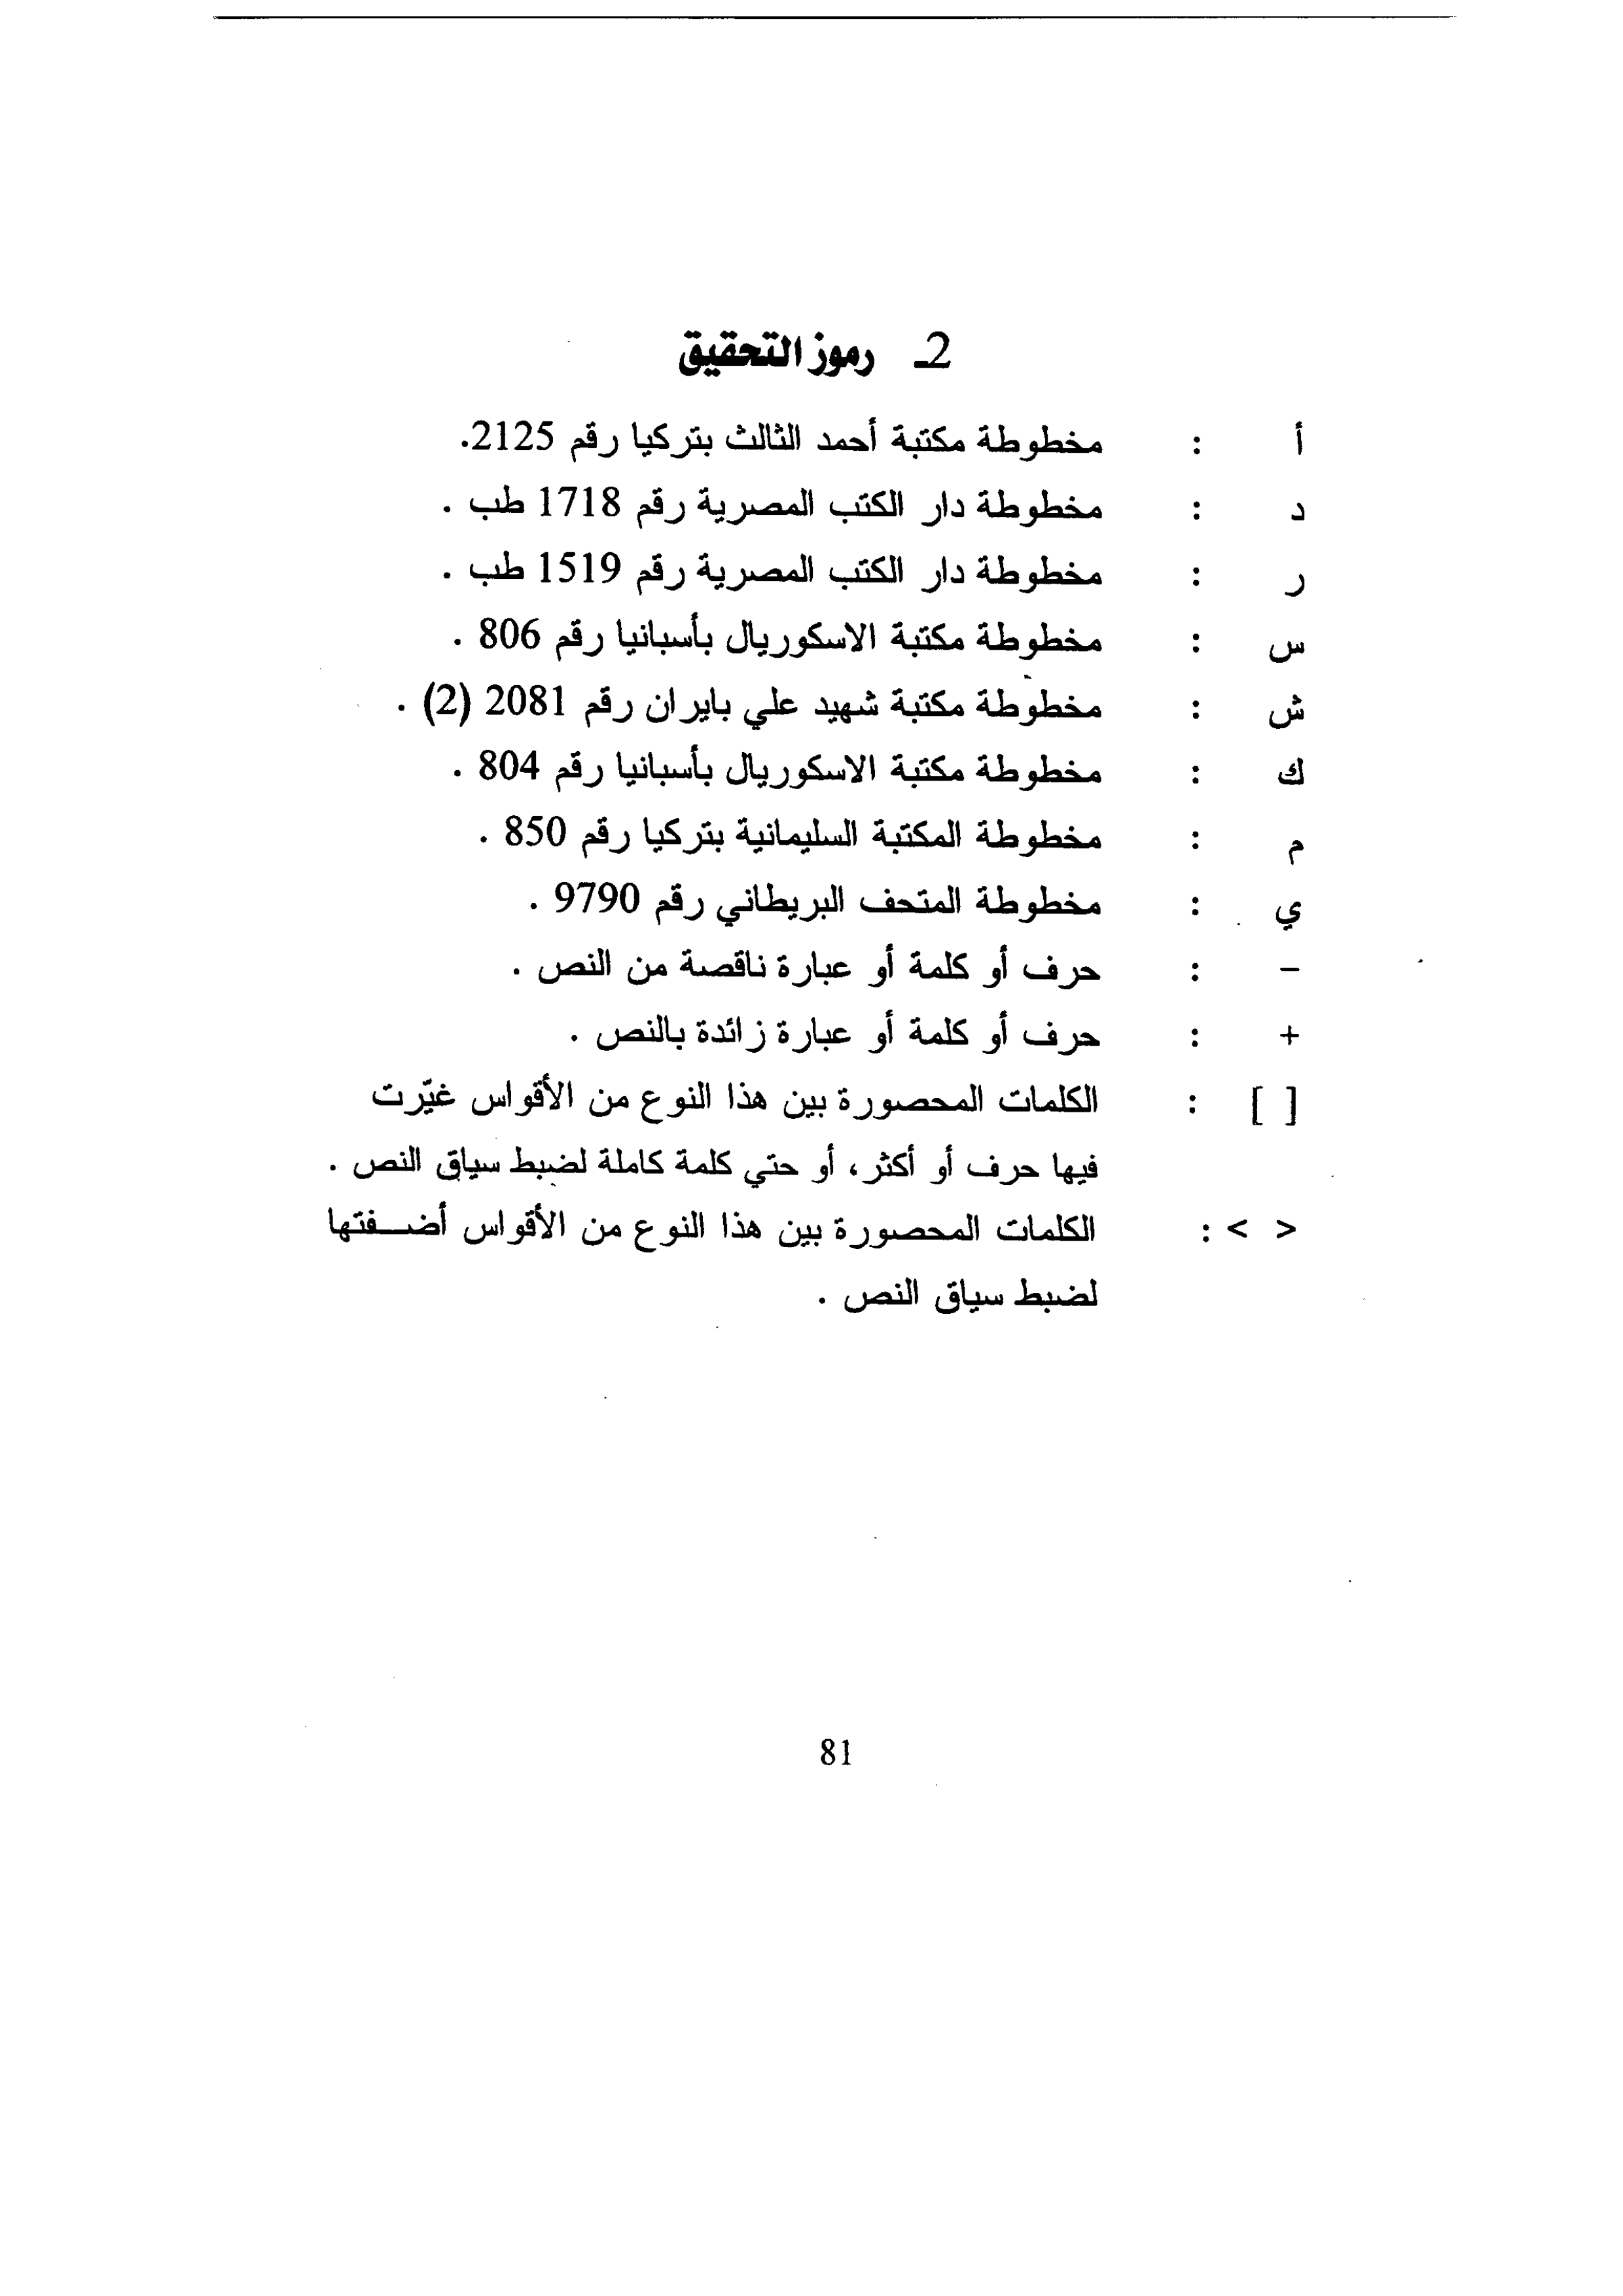 2ـ رموز التحقيق
أ : مخطوطة مكتبة أحمد الثالث بتركيا رقم 2125.
د : مخطوطة دار الكتب المصرية رقم 1718 طب .
ر : مخطوطة دار الكتب المصرية رقم 1519 طب .
س : مخطوطة مكتبة الاسكوريال بأسبانيا رقم 806 .
ش : مخطوطة مكتبة شهيد علي بايران رقم 2081 (2) .
ك : مخطوطة مكتبة الاسكوريال بأسبانيا رقم 804 .
م : مخطوطة المكتبة السليمانية بتركيا رقم 850 .
ي : مخطوطة المتحف البريطاني رقم 9790 .
– : حرف أو كلمة أو عبارة ناقصة من النص .
+ : حرف أو كلمة أو عبارة زائدة بالنص .
[ ] : الكلمات المحصورة بين هذا النوع من الأقواس غيّرت
فيها حرف أو أكثر، أو حتي كلمة كاملة لضبط سياق النص .
< > : الكلمات المحصورة بين هذا النوع من الأقواس أضـــفتها
لضبط سياق النص .
81